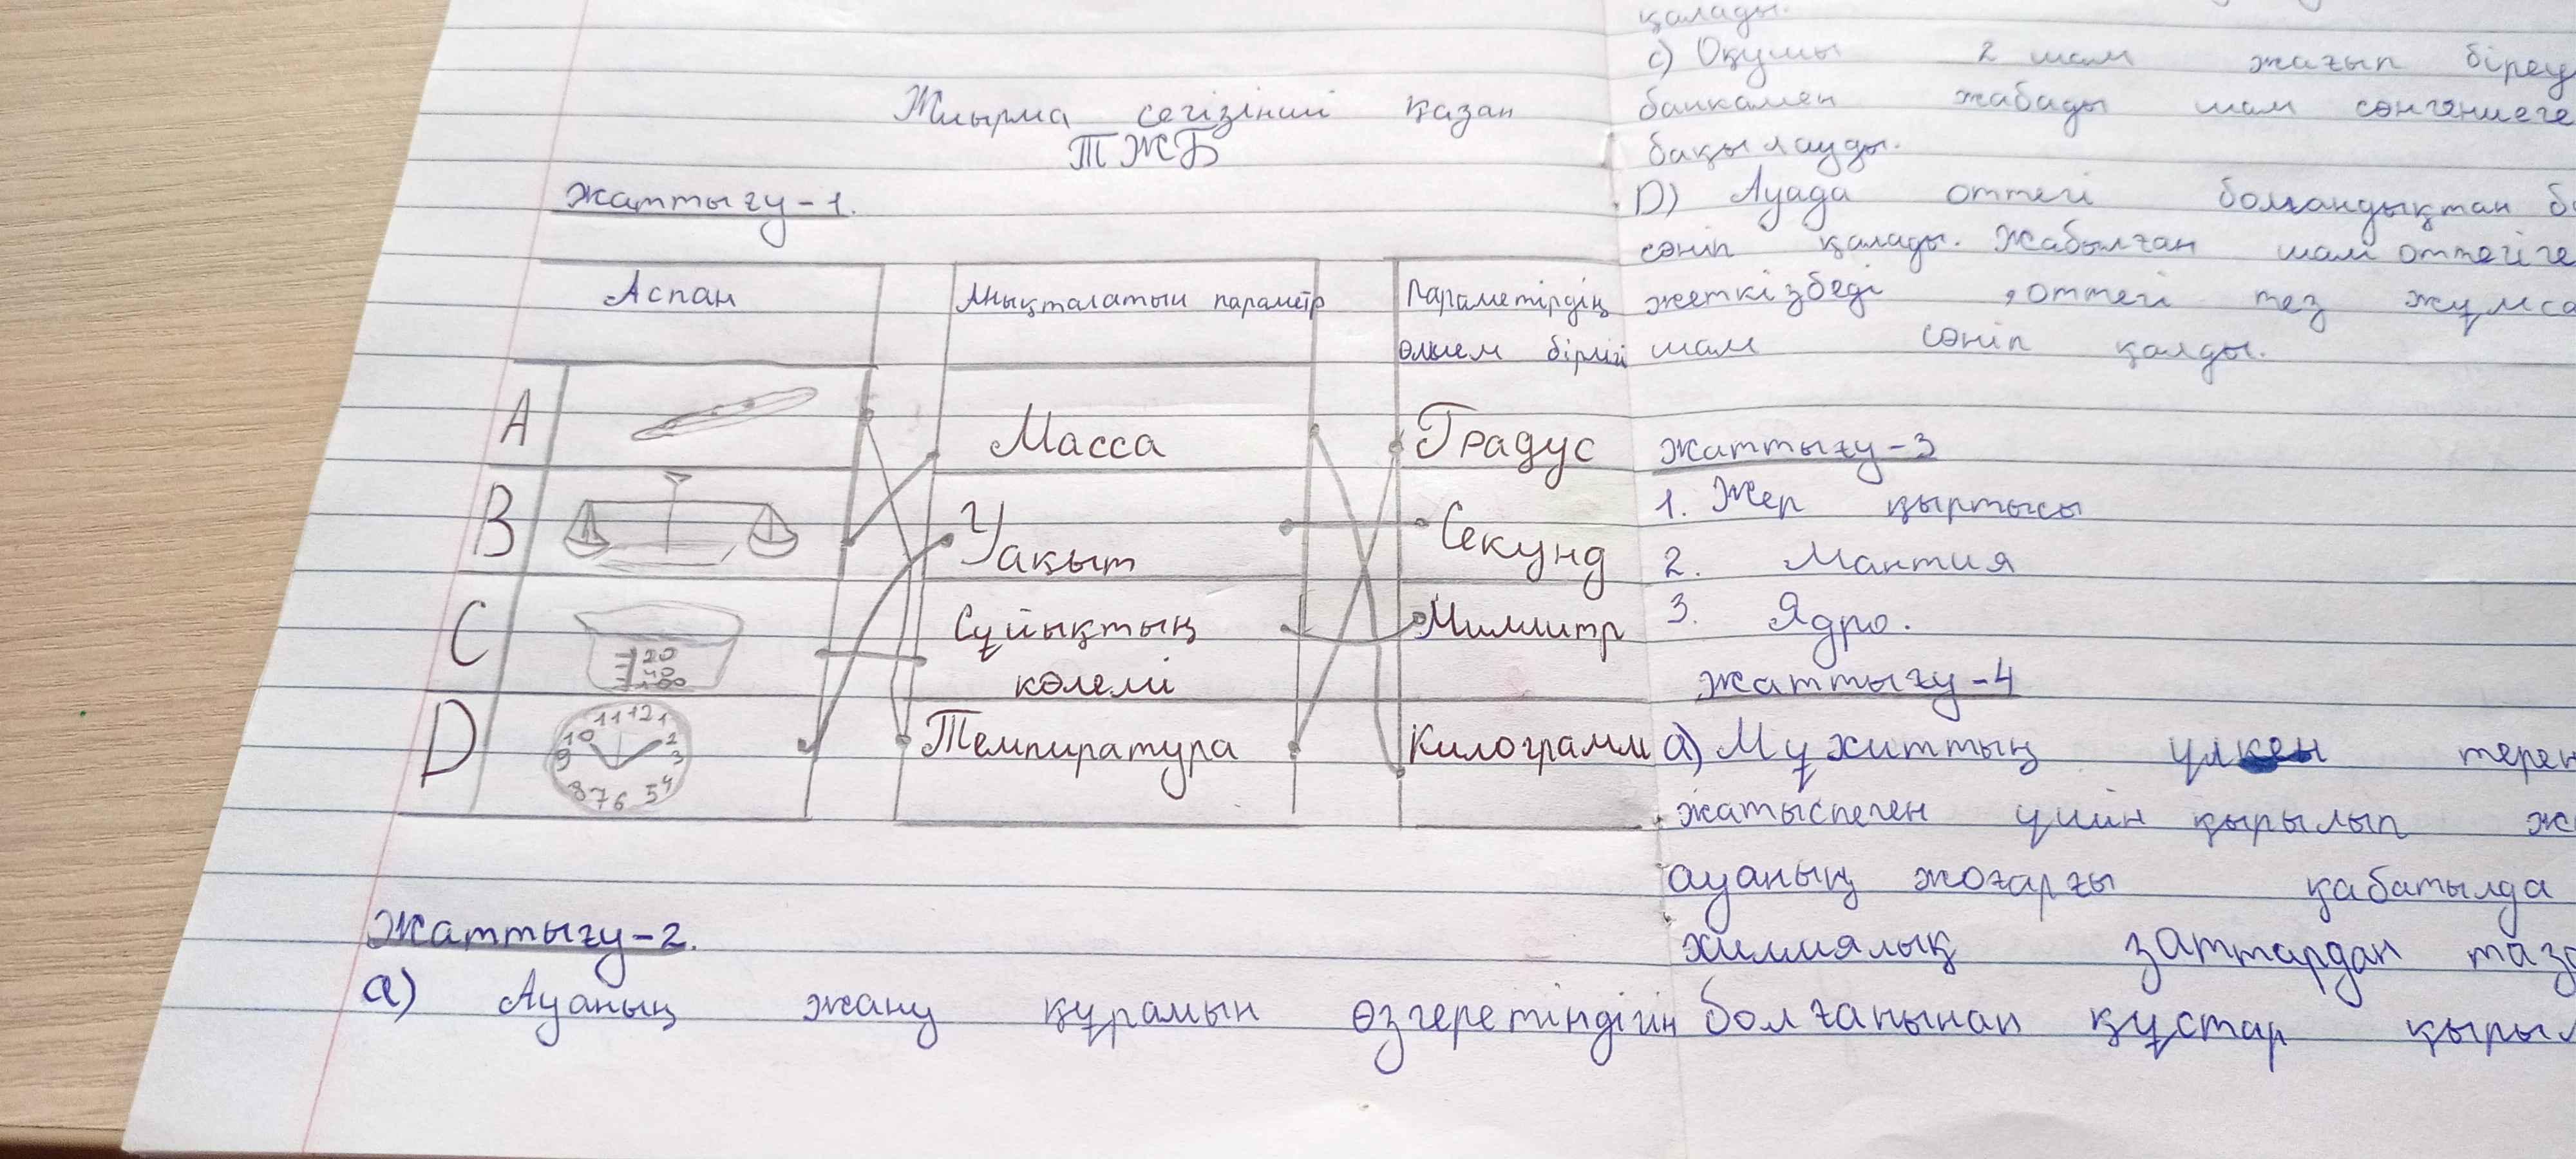 Жиырма сегізінші қазан
ТЖБ
жаттығу-1.
Аспап
Анықталатын параметр
Параметірдің
өлшем бірлігі
A
Масса
Градус
B
Уақыт
Секунд
C
120
40
100
Сұйықтың
көлемі
Миллитр
D
11 12 1
10 2
9 3
8 7 6 5 4
Темпиратура
Килограмм
Жаттығу-2.
а) Ауаның жану құрамын өзгеретіндігін
қалады.
c) Оқушы 2 шам жағып біреу
банкамен жабады шам сөнгеншеге
бақылауды.
D) Ауада оттегі болғандықтан
сөніп қалады. Жабылған шам оттегіге
жеткізбеді , оттегі тез жұмса
шам сөніп қалды.
жаттығу-3
1. Жер қыртысы
2. Мантия
3. Ядро.
жаттығу-4
а) Мұхиттың үлкен терең
жатыспеген үшін қырылып
ауаның жоғарғы қабатылда
химиялық заттардан таза
болғанынан құстар қырыл